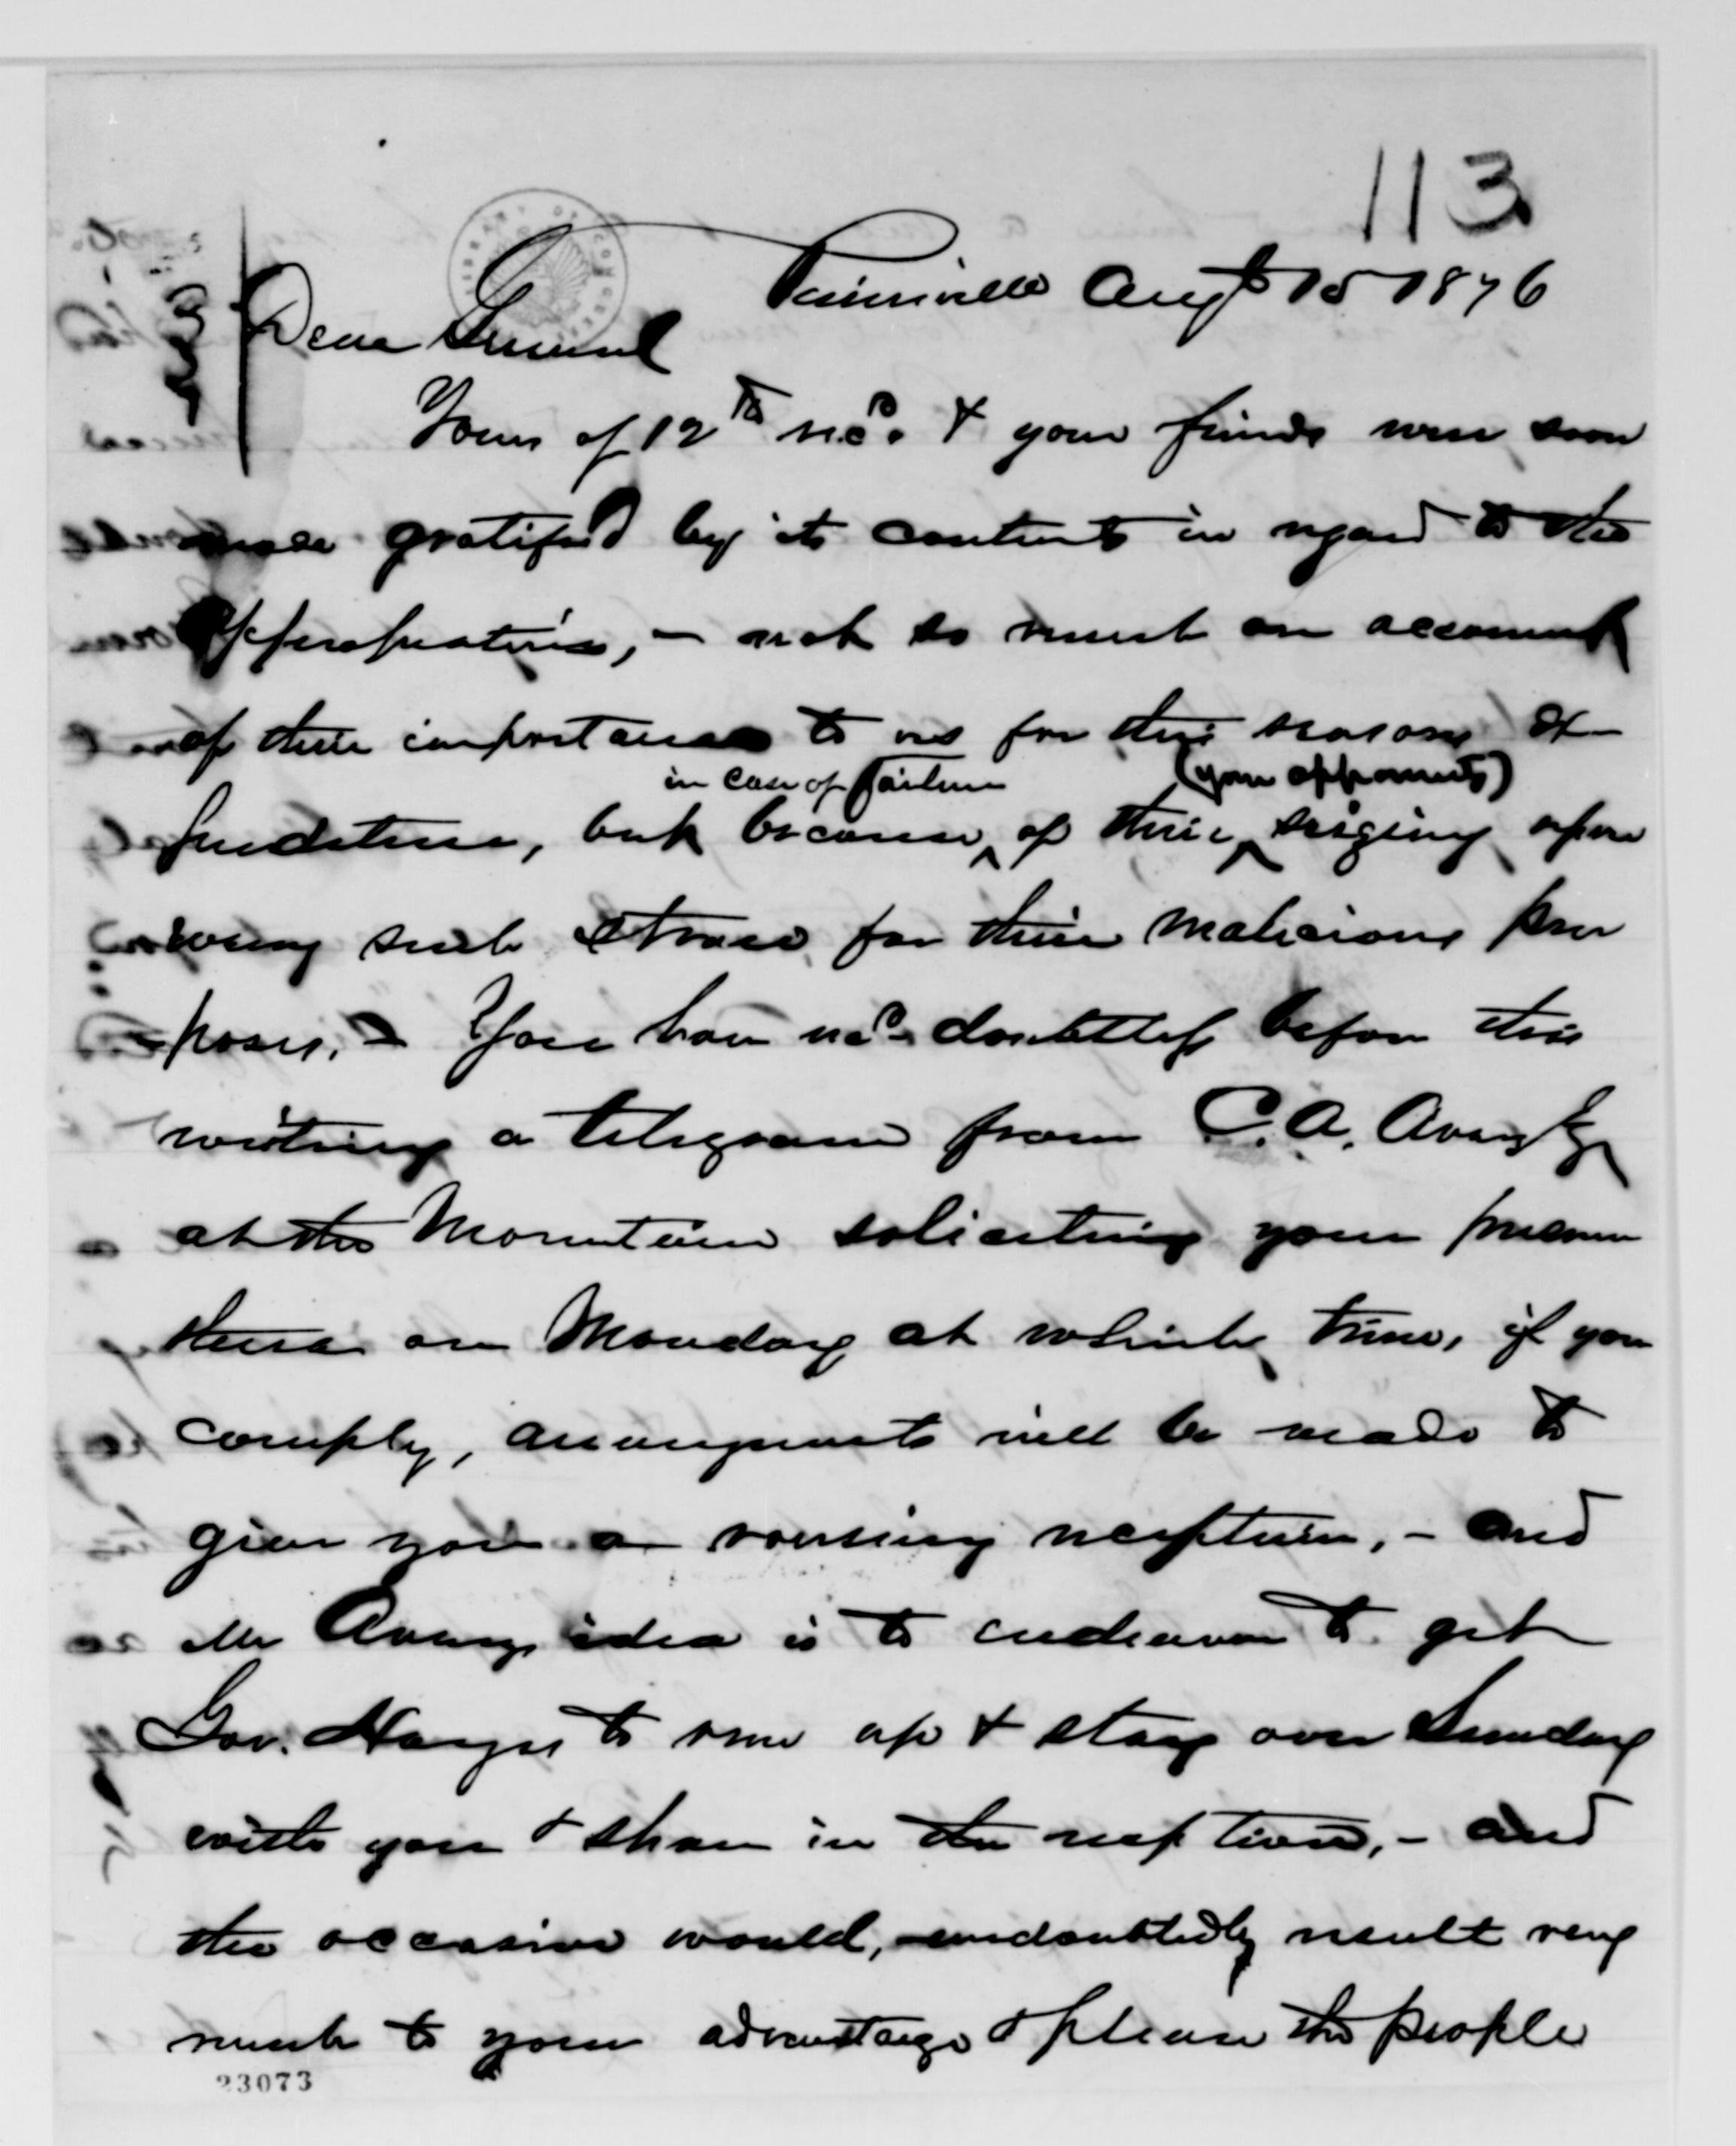 113
Painesville Augt 15 1876
Dear General
Yours of 12th recd. & your friends were soon
made gratified by its contents in regard to the
appropriations, – not so much on account
of their importance to us for this seasons ex-
in case of failure (your opponents)
penditure, but because of their seizing upon
using such straws for their malicious pur
poses. – You have recd doubtless before this
writing a telegram from C. A. Avery
at the Mountain soliciting your presence
there on Monday at which time, if you
comply, arrangements will be made to
give you a rousing reception, – and
Mr Averys idea is to endeavor to get
Gov. Hayes to run up & stay over Sunday
with you & share in the reception, – and
the occasion would, undoubtedly result very
much to your advantage & please the people
23073